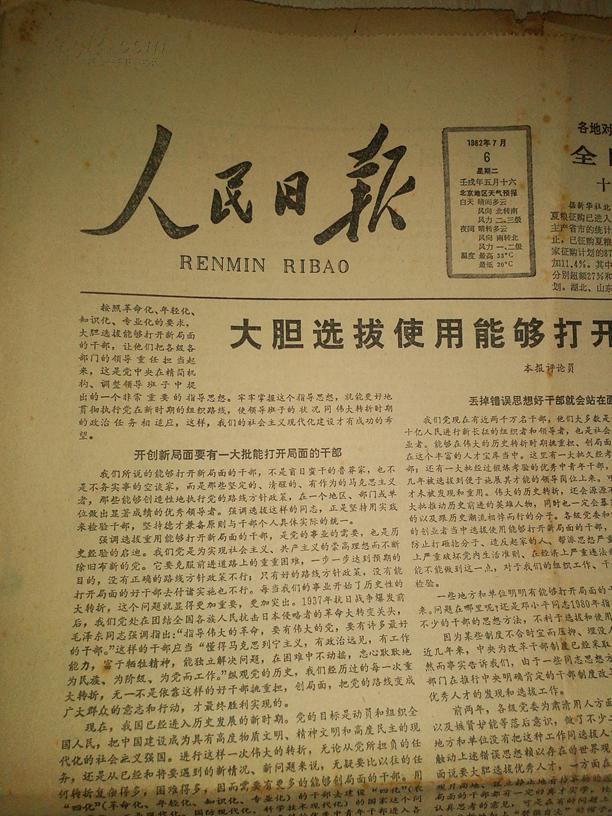 人民日报
RENMIN RIBAO
1982年7月
6
星期二
壬戌年五月十六
北京地区天气预报
白天 晴间多云
风向 北转南
风力 二、三级
夜间 晴转多云
风向 南转北
风力 一、二级
温度 最高 33℃
最低 20℃
各地对
全
十
据新华社北
夏粮征购已进入
主产省市的统计
止，已征购夏粮
家征购计划的87
加11.4%。其中
分别超额27%和
划。湖北、山东
大胆选拔使用能够打开
本报评论员
按照革命化、年轻化、
知识化、专业化的要求，
大胆选拔能够打开新局面
的干部，让他们把各级各
部门的领导重任担当起
来，这是党中央在精简机
构、调整领导班子中提
出的一个非常重要的指导思想。牢牢掌握这个指导思想，就能更好地
贯彻执行党在新时期的组织路线，使领导班子的状况同伟大转折时期
的政治任务相适应，这样，我们的社会主义现代化建设才有成功的希
望。
开创新局面要有一大批能打开局面的干部
我们所说的能够打开新局面的干部，不是盲目蛮干的鲁莽家，也不
是不务实事的空谈家，而是那些坚定的、清醒的、有作为的马克思主义
者，那些能够创造性地执行党的路线方针政策，在一个地区、部门或单
位做出显著成绩的优秀领导者。强调选拔这样的同志，正是坚持用实践
来检验干部，坚持德才兼备原则与干部个人具体实际的统一。
强调选拔重用能够打开新局面的干部，是党的事业的需要，也是历
史经验的启迪。我们党是为实现社会主义、共产主义的崇高理想而不断
除旧布新的党。它要克服前进道路上的重重困难，一步一步达到预期的
目的，没有正确的路线方针政策不行；只有好的路线方针政策，没有能
打开局面的好干部去付诸实施也不行。每当我们的事业开始了历史性的
大转折，这个问题就显得更加重要，更加突出。1937年抗日战争爆发前
后，我们党处在团结全国各族人民抗击日本侵略者的革命大转变关头，
毛泽东同志强调指出：“指导伟大的革命，要有伟大的党，要有许多最好
的干部。”这样的干部应当“懂得马克思列宁主义，有政治远见，有工作
能力，富于牺牲精神，能独立解决问题，在困难中不动摇，忠心耿耿地
为民族、为阶级、为党而工作。”纵观党的历史，我们经历过的每一次重
大转折，无一不是依靠这样的好干部挑重担，创局面，把党的路线变成
广大群众的意志和行动，才最终胜利实现的。
现在，我国已经进入历史发展的新时期。党的目标是动员和组织全
国人民，把中国建设成为具有高度物质文明、精神文明和高度民主的现
代化的社会主义强国。进行这样一次伟大的转折，无论从党所担负的任
务，还是从已经和将要遇到的新情况、新问题来说，无疑要比以往的任
何转折复杂得多，困难得多，因而需要有更多的能够创局面的干部。用
“四化”（革命化、年轻化、知识化、专业化）的干部去建设“四化”（农
丢掉错误思想好干部就会站在面
我们党现在有近两千万名干部，他们大多数是
十亿人民进行新长征的组织者和领导者，也是社会
业者。能够在伟大的历史转折时期挑重担、创局面
在这个丰富的人才宝库当中。这里有一大批久经考
部，还有一大批经过锻炼考验的优秀中青年干部，
几年被选拔到便于施展其才能的领导岗位上来。可
才未被发现和重用。伟大的历史转折，还会源源不
大批推动历史前进的英雄人物，同时也一定会暴
的以及跟历史潮流相悖而行的分子。各级党委和
的创业者当中选拔使用能够打开新局面的干部，
防止打砸抢分子、造反起家的人、帮派思想严重
上严重破坏党内生活准则、在经济上严重违法
能不能做到这一点，对于我们的组织工作、干
检验。
一些地方和单位明明有能够打开新局面的干
来。问题在哪里呢？还是邓小平同志1980年指
不少的干部的思想方法，不利于选拔和使用
因为某些制度不合时宜而压抑、埋没人
近几年来，中央为改革干部制度已经采取
然而事实告诉我们，由于一些同志思想方
部门在推行中央明确肯定的干部制度改革
优秀人才的发现和选拔工作。
前两年，各级党委为肃清用人方面的
以及嫉贤妒能等落后意识，做了不少
地方和单位没有把这种工作同选拔人
触动上述错误思想赖以存在的世界观
面说要大胆选拔优秀人才，一方面在